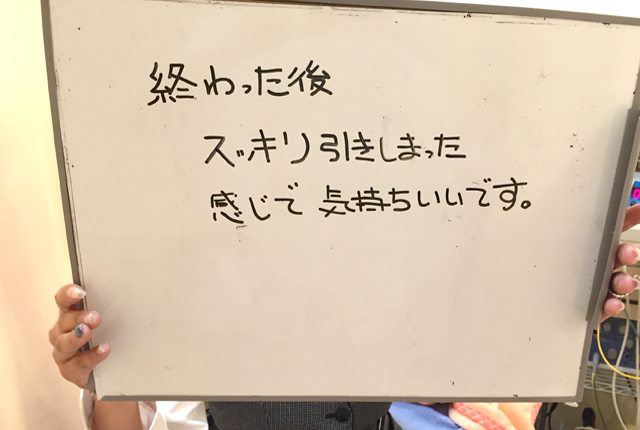 終わった後
スッキリ引きしまった
感じで 気持ちいいです。